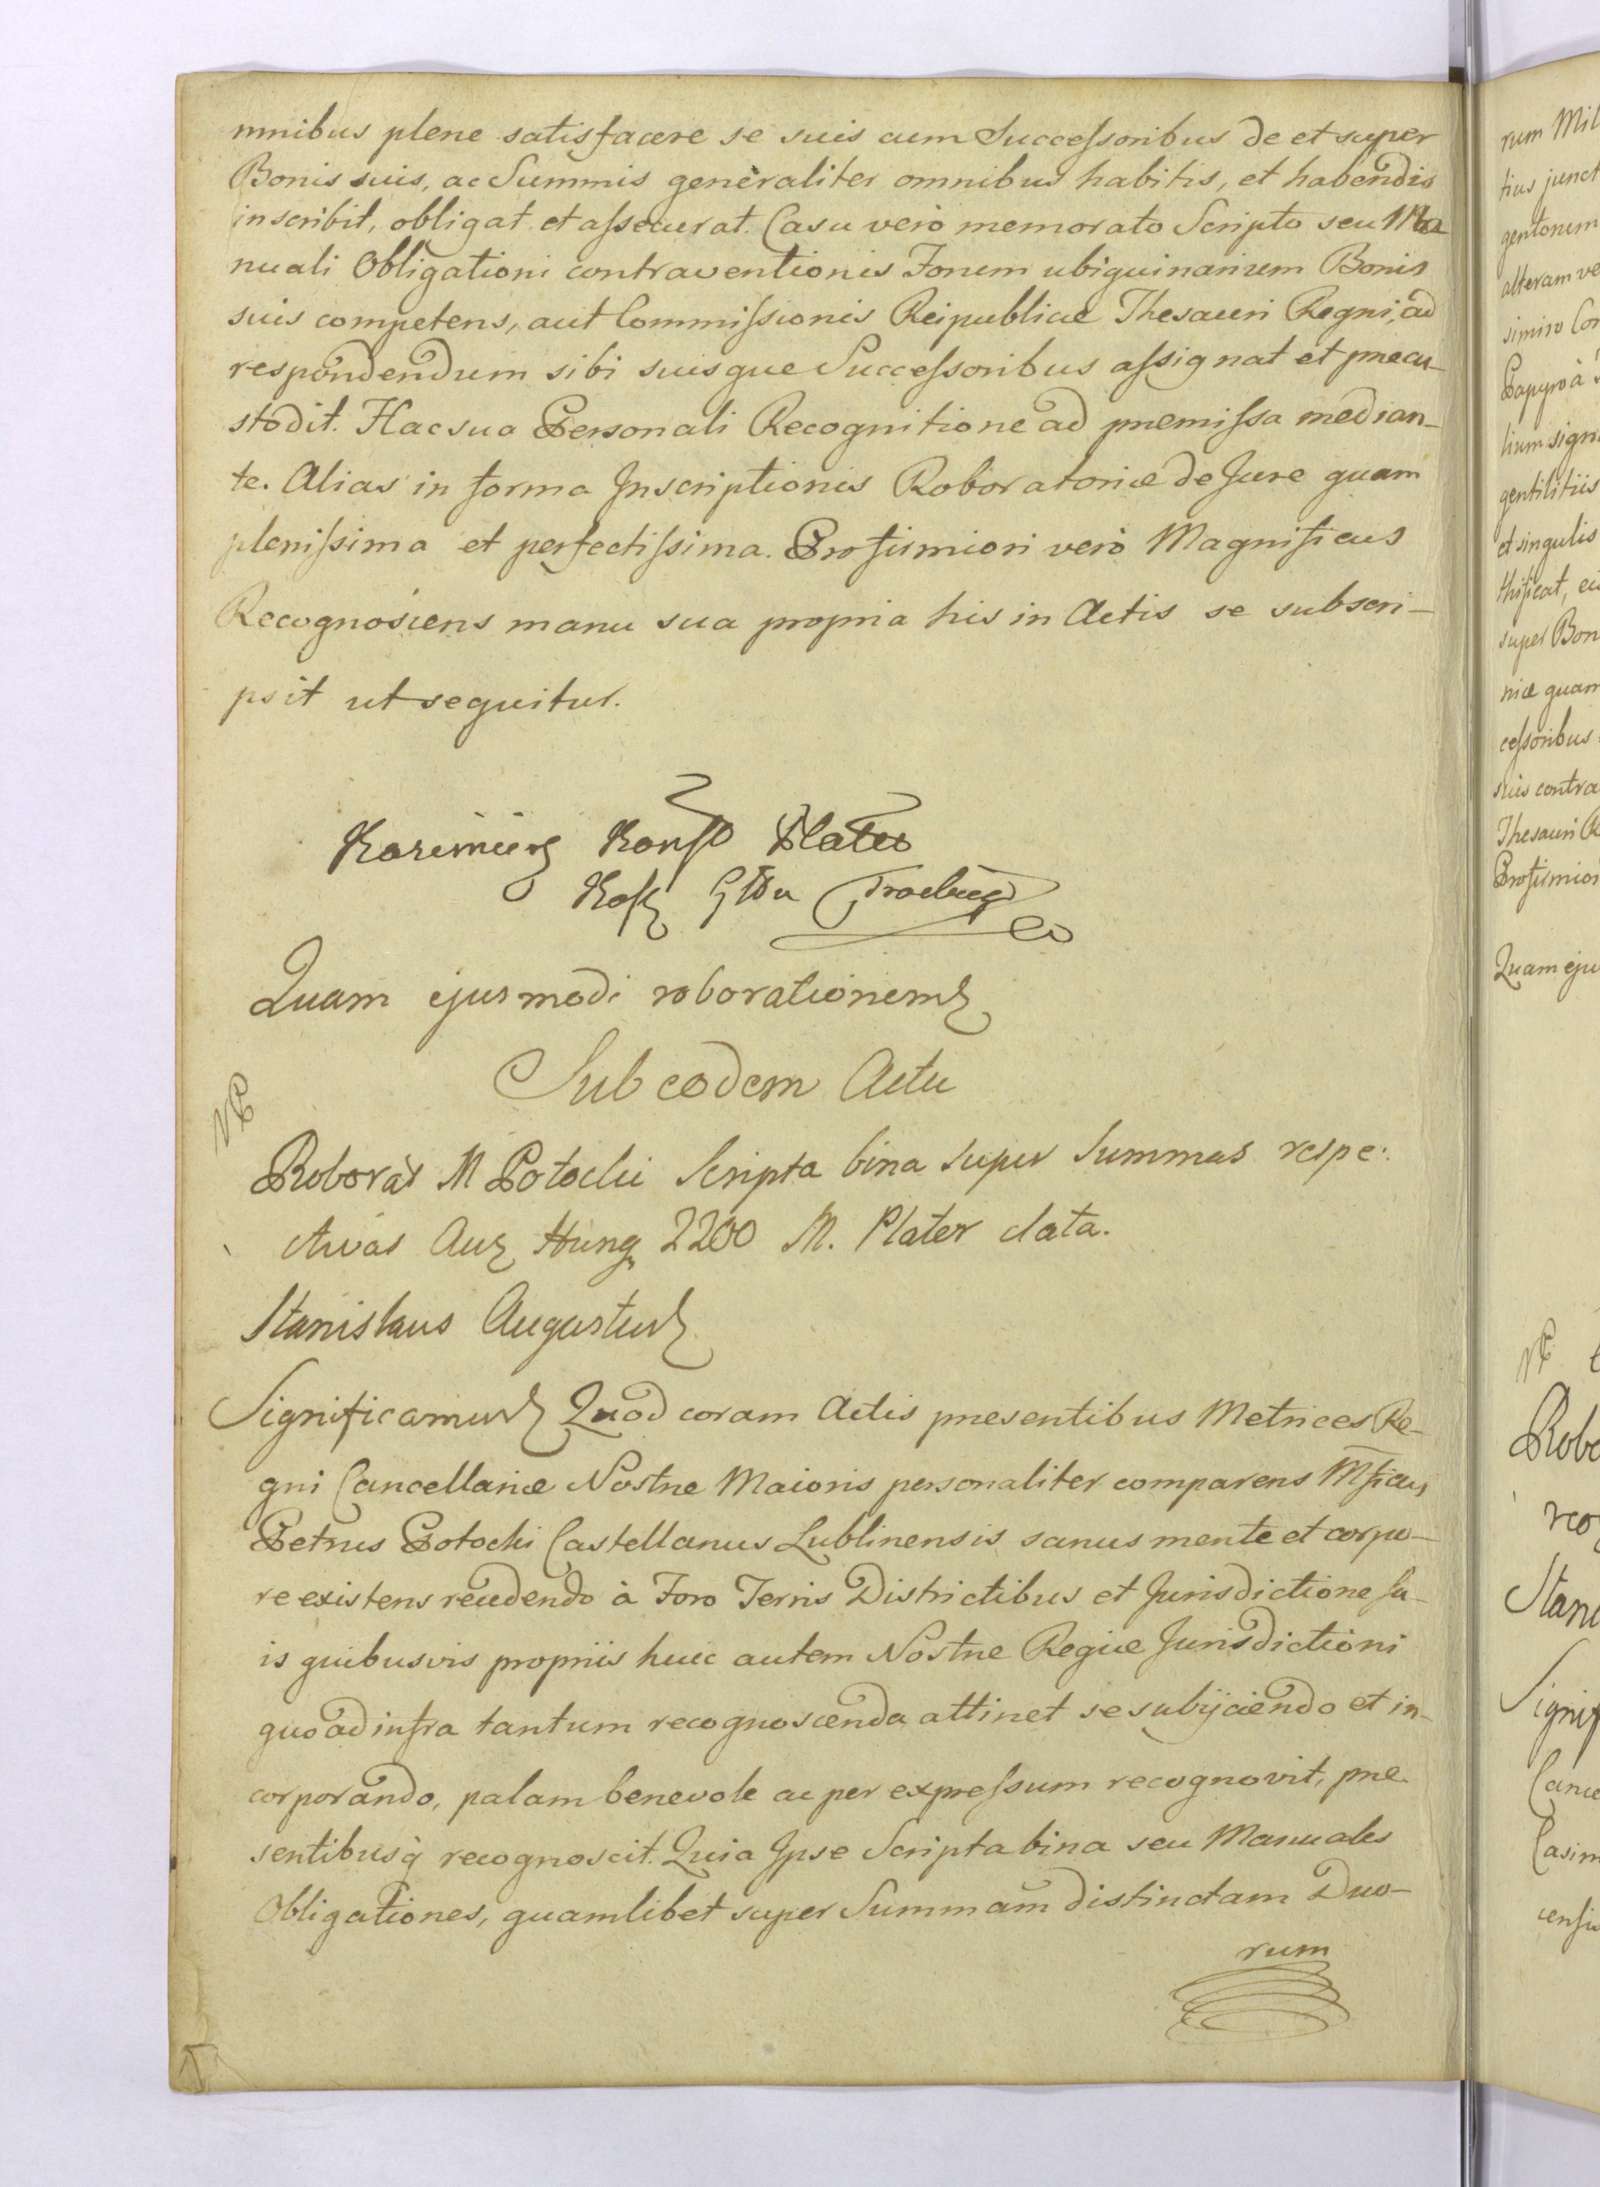 mnibus plene satisfacere se suis cum Successoribus de et super
Bonis suis, ac Summis generaliter omnibus habitis, et habendis
inscribit, obligat et assecurat. Casu verò memorato Scripto seu Ma
nuali Obligationi contraventionis Forum ubiquinarium Bonis
suis competens, aut Commissionis Reipublicæ Thesauri Regni, ad
respondendum sibi suisque Successoribus assignat et præcu-
stodit. Hac sua Personali Recognitione ad præmissa median-
te. Alias in forma Inscriptionis Roboratoriæ de Jure quam
plenissima et perfectissima. Pro firmiori verò Magnificus
Recognoscens manu sua propria his in Actis se subscri-
psit ut sequitur.
Kazimierz Plater
Quam ejusmodi roborationem
Sub eodem Actu
Roborat M Potocki Scripta bina super Summas respe:
ctivas Aur Hung 2200 M. Plater data.
Stanislaus Augustus
Significamus Quod coram Actis præsentibus Metrices Re-
gni Cancellariæ Nostræ Maioris personaliter comparens Mficus
Petrus Potocki Castellanus Lublinensis sanus mente et corpo-
re existens recedendo à Foro Terris Districtibus et Jurisdictione su-
is quibusvis propriis huic autem Nostræ Regiæ Jurisdictioni
quo ad infra tantum recognoscenda attinet se subijciendo et in-
corporando, palam benevole ac per expressum recognovit, præ
sentibusq̀ recognoscit. Quia Ipse Scripta bina seu Manuales
Obligationes, quamlibet super Summam distinctam Duo-
rum
rum Mil
tius junct
alteram ve
simiro Con
Papyro à
lium sign
gentilitiis
et singulis
super Bon
riæ quam
cessoribus
suis contra
Thesauri R
Pro firmiori
Quam eju
Robo
Stani
Signif
Cance
Casim